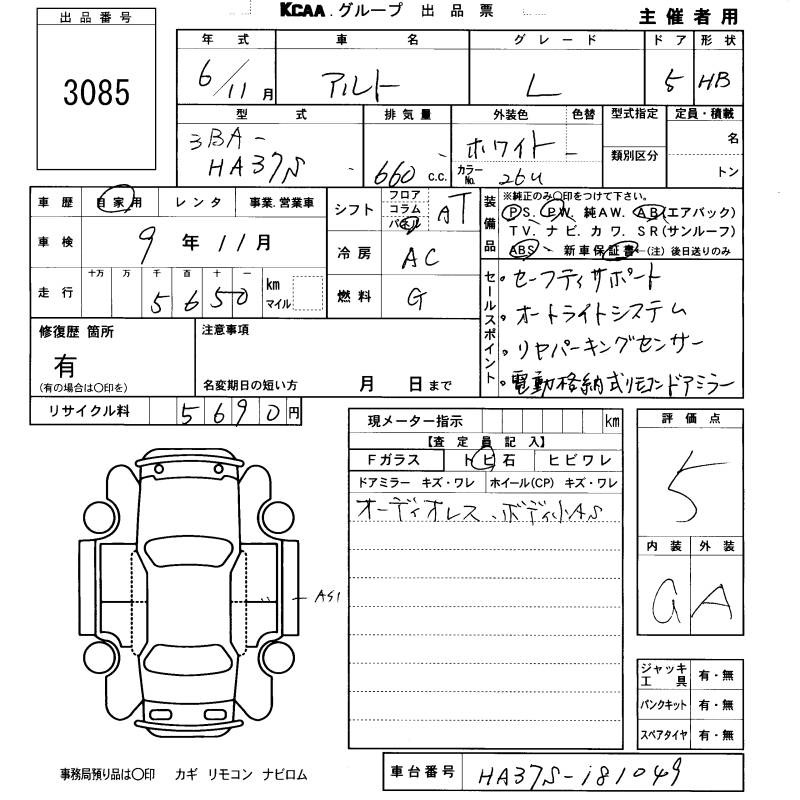 KCAA.グループ 出品票
主催者用
出品番号
3085
年式 車名 グレード ドア 形状
6/11月 アルト L 5 HB
型式 排気量 外装色 色替 型式指定 定員・積載
3BA-
HA37S 660 c.c. ホワイト 名
カラーNo. 26U 類別区分 トン
車歴 自家用 レンタ 事業.営業車
車検 9年11月
走行 十万 万 千 百 十 一
5650 km マイル
シフト フロア コラム パネル AT
冷房 AC
燃料 G
装備品
※純正のみ〇印をつけて下さい。
PS. PW. 純AW. AB(エアバック)
TV. ナビ. カワ. SR(サンルーフ)
ABS 新車保証書 (注) 後日送りのみ
セールスポイント
・セーフティサポート
・オートライトシステム
・リヤパーキングセンサー
・電動格納式リモコンドアミラー
修復歴 箇所
有
(有の場合は〇印を)
注意事項
名変期日の短い方 月 日まで
リサイクル料 5690円
現メーター指示 km
【査定員記入】
Fガラス トビ石 ヒビワレ
ドアミラー キズ・ワレ ホイール(CP) キズ・ワレ
オーディオレス、ボディ小AS
AS1
評価点
5
内装 外装
G A
ジャッキ工具 有・無
パンクキット 有・無
スペアタイヤ 有・無
事務局預り品は〇印 カギ リモコン ナビロム
車台番号 HA37S-181049